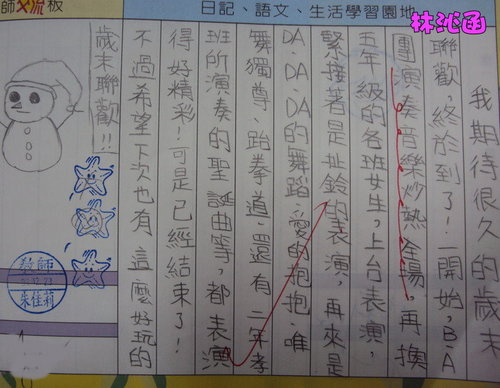 師交流板
日記、語文、生活學習園地
林沁函
我期待很久的歲末
聯歡，終於到了！一開始，B·A
團演奏音樂炒熱全場，再換
五年級的各班女生，上台表演，
緊接著是扯鈴的表演，再來是
DA·DA·DA的舞蹈、愛的抱抱、唯
舞獨尊、跆拳道、還有二年孝
班所演奏的聖誕曲等，都表演
得好精彩！可是已經結束了！
不過希望下次也有這麼好玩的
歲末聯歡!!
教師